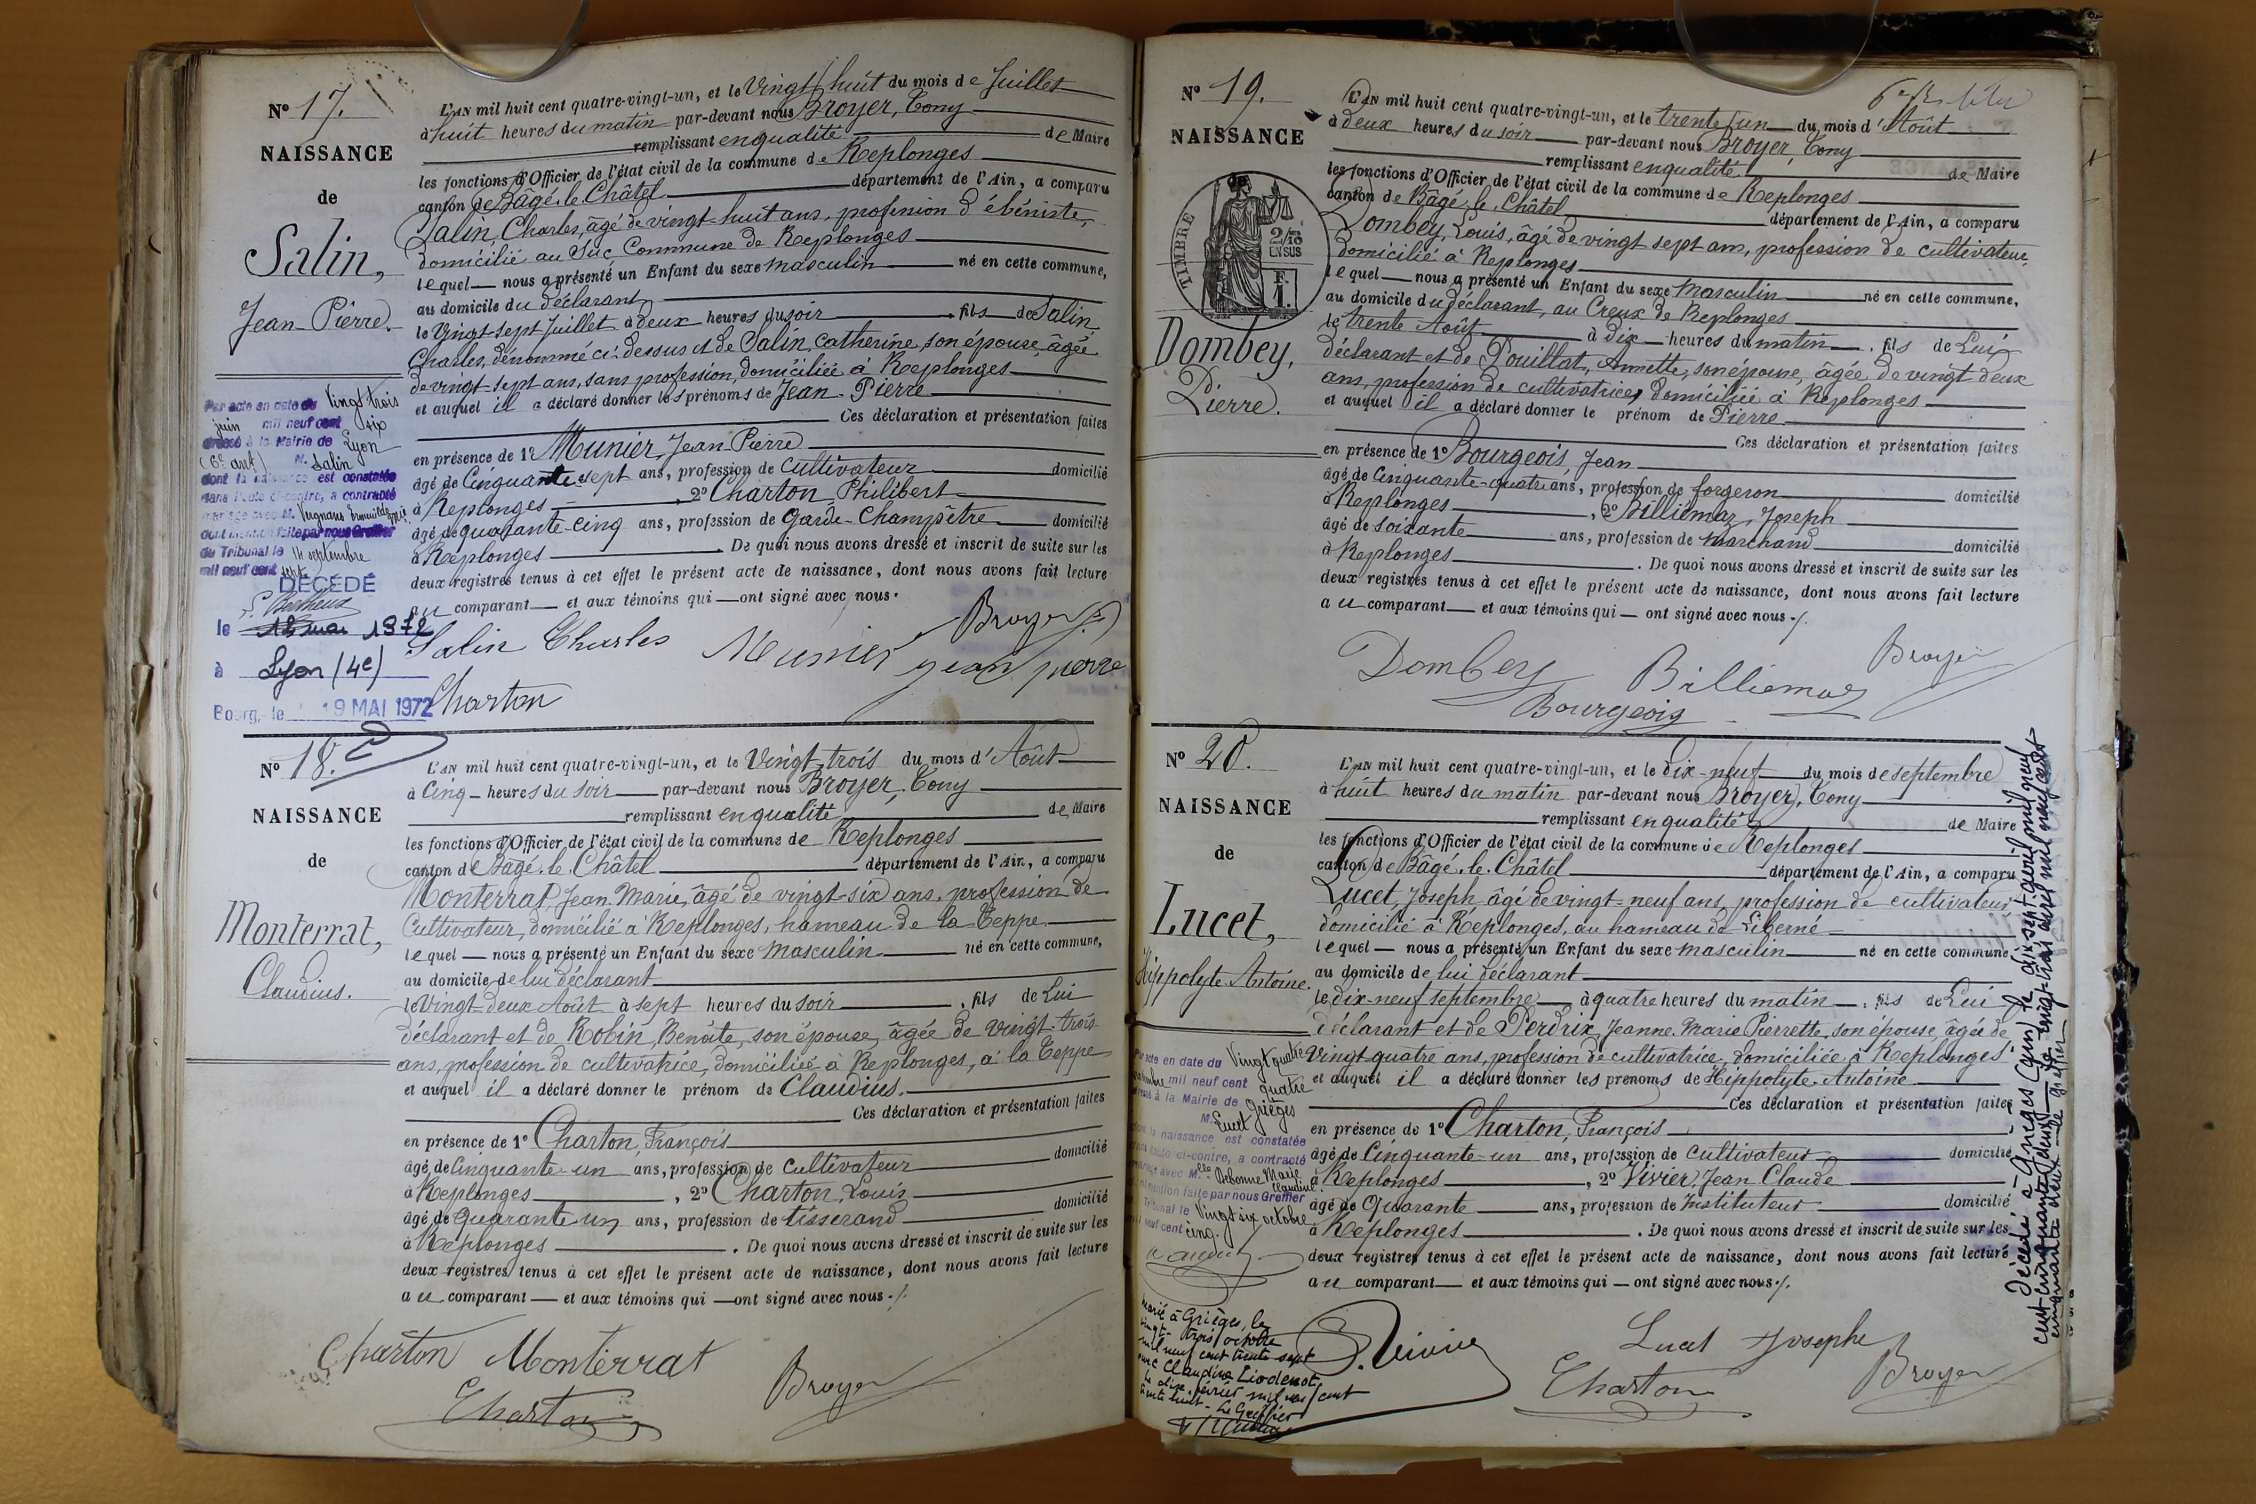 N° 17.
NAISSANCE
de
Salin,
Jean-Pierre.
L'AN mil huit cent quatre-vingt-un, et le Vingt huit du mois de Juillet
à huit heures du matin par-devant nous Broyer, Tony
remplissant en qualité de Maire
les fonctions d'Officier de l'état civil de la commune de Replonges
canton de Bâgé-le-Châtel département de l'Ain, a comparu
Salin, Charles, âgé de vingt-huit ans, profession d'ébéniste,
domicilié au Suc, Commune de Replonges
lequel nous a présenté un Enfant du sexe masculin né en cette commune,
au domicile du déclarant
le Vingt sept Juillet à deux heures du soir, fils de Salin,
Charles, dénommé ci-dessus et de Salin, Catherine, son épouse, âgée
de vingt-sept ans, sans profession, domiciliée à Replonges
et auquel il a déclaré donner les prénoms de Jean-Pierre
Ces déclaration et présentation faites
en présence de 1° Munier, Jean Pierre
âgé de Cinquante-sept ans, profession de cultivateur domicilié
à Replonges, 2° Charton, Philibert
âgé de quarante-cinq ans, profession de Garde-Champêtre domicilié
à Replonges. De quoi nous avons dressé et inscrit de suite sur les
deux registres tenus à cet effet le présent acte de naissance, dont nous avons fait lecture
au comparant et aux témoins qui ont signé avec nous.
Broyer
Salin Charles Munier jean pierre
Charton
Par acte en date du Vingt trois
juin mil neuf cent six
dressé à la Mairie de Lyon
(6e arrt) M. Salin
dont la naissance est constatée
dans l'acte ci-contre, a contracté
mariage avec M.
dont mention faite par nous Greffier
du Tribunal le 14 septembre
mil neuf cent sept
DÉCÉDÉ
le 12 mai 1972
à Lyon (4e)
Bourg, le 19 MAI 1972
N° 18.
NAISSANCE
de
Monterrat,
Claudius.
L'AN mil huit cent quatre-vingt-un, et le Vingt-trois du mois d'Août
à Cinq heures du soir par-devant nous Broyer, Tony
remplissant en qualité de Maire
les fonctions d'Officier de l'état civil de la commune de Replonges
canton de Bâgé-le-Châtel département de l'Ain, a comparu
Monterrat, Jean-Marie, âgé de vingt-six ans, profession de
Cultivateur, domicilié à Replonges, hameau de la Teppe
lequel nous a présenté un Enfant du sexe masculin né en cette commune,
au domicile de lui déclarant
le Vingt-deux Août à sept heures du soir, fils de Lui
déclarant et de Robin, Benoîte, son épouse, âgée de vingt-trois
ans, profession de cultivatrice, domiciliée à Replonges, à la Teppe
et auquel il a déclaré donner le prénom de Claudius.
Ces déclaration et présentation faites
en présence de 1° Charton, François
âgé de Cinquante-un ans, profession de cultivateur domicilié
à Replonges, 2° Charton, Louis
âgé de quarante-un ans, profession de tisserand domicilié
à Replonges. De quoi nous avons dressé et inscrit de suite sur les
deux registres tenus à cet effet le présent acte de naissance, dont nous avons fait lecture
au comparant et aux témoins qui ont signé avec nous.
Charton Monterrat
Broyer
Charton
N° 19.
NAISSANCE
TIMBRE
2/10
EN SUS
1 F.
Dombey,
Pierre.
L'AN mil huit cent quatre-vingt-un, et le trente-un du mois d'Août
à deux heures du soir par-devant nous Broyer, Tony
remplissant en qualité de Maire
les fonctions d'Officier de l'état civil de la commune de Replonges
canton de Bâgé-le-Châtel département de l'Ain, a comparu
Dombey, Louis, âgé de vingt sept ans, profession de cultivateur,
domicilié à Replonges
lequel nous a présenté un Enfant du sexe masculin né en cette commune,
au domicile du déclarant, au Creux de Replonges
le trente Août à dix heures du matin, fils de Lui
déclarant et de Pouillat, Annette, son épouse, âgée de vingt deux
ans, profession de cultivatrice, domiciliée à Replonges
et auquel il a déclaré donner le prénom de Pierre
Ces déclaration et présentation faites
en présence de 1° Bourgeois, Jean
âgé de Cinquante-quatre ans, profession de forgeron domicilié
à Replonges, 2° Billiemaz, Joseph
âgé de soixante ans, profession de marchand domicilié
à Replonges. De quoi nous avons dressé et inscrit de suite sur les
deux registres tenus à cet effet le présent acte de naissance, dont nous avons fait lecture
au comparant et aux témoins qui ont signé avec nous.
Dombey Billiemaz Broyer
Bourgeois
N° 20.
NAISSANCE
de
Lucet,
Hippolyte Antoine.
L'AN mil huit cent quatre-vingt-un, et le dix-neuf du mois de septembre
à huit heures du matin par-devant nous Broyer, Tony
remplissant en qualité de Maire
les fonctions d'Officier de l'état civil de la commune de Replonges
canton de Bâgé-le-Châtel département de l'Ain, a comparu
Lucet, Joseph, âgé de vingt-neuf ans, profession de cultivateur
domicilié à Replonges, au hameau de Liberné
lequel nous a présenté un Enfant du sexe masculin né en cette commune
au domicile de lui déclarant
le dix-neuf septembre à quatre heures du matin, fils de Lui
déclarant et de Perdrix, Jeanne-Marie Pierrette, son épouse, âgée de
vingt quatre ans, profession de cultivatrice, domiciliée à Replonges
et auquel il a déclaré donner les prénoms de Hippolyte-Antoine
Ces déclaration et présentation faites
en présence de 1° Charton, François
âgé de Cinquante-un ans, profession de cultivateur domicilié
à Replonges, 2° Vivier, Jean Claude
âgé de Quarante ans, profession de Instituteur domicilié
à Replonges. De quoi nous avons dressé et inscrit de suite sur les
deux registres tenus à cet effet le présent acte de naissance, dont nous avons fait lecture
au comparant et aux témoins qui ont signé avec nous.
Vivier Lucet Josephe
Charton Broyer
Par acte en date du Vingt quatre
mil neuf cent quatre
dressé à la Mairie de Grièges
M. Lucet
dont la naissance est constatée
dans l'acte ci-contre, a contracté
mariage avec Mlle Debonne Marie
Claudine
dont mention faite par nous Greffier
du Tribunal le Vingt six octobre
mil neuf cent cinq.
Marié à Grièges, le
vingt-trois octobre
mil neuf cent trente sept
avec Claudine Liodenot
le dix février mil neuf cent
trente huit - Le Greffier
Décédé à Grièges (Ain) le dix sept avril mil neuf
cent cinquante neuf - le vingt trois avril mil neuf cent
cinquante neuf - le greffier